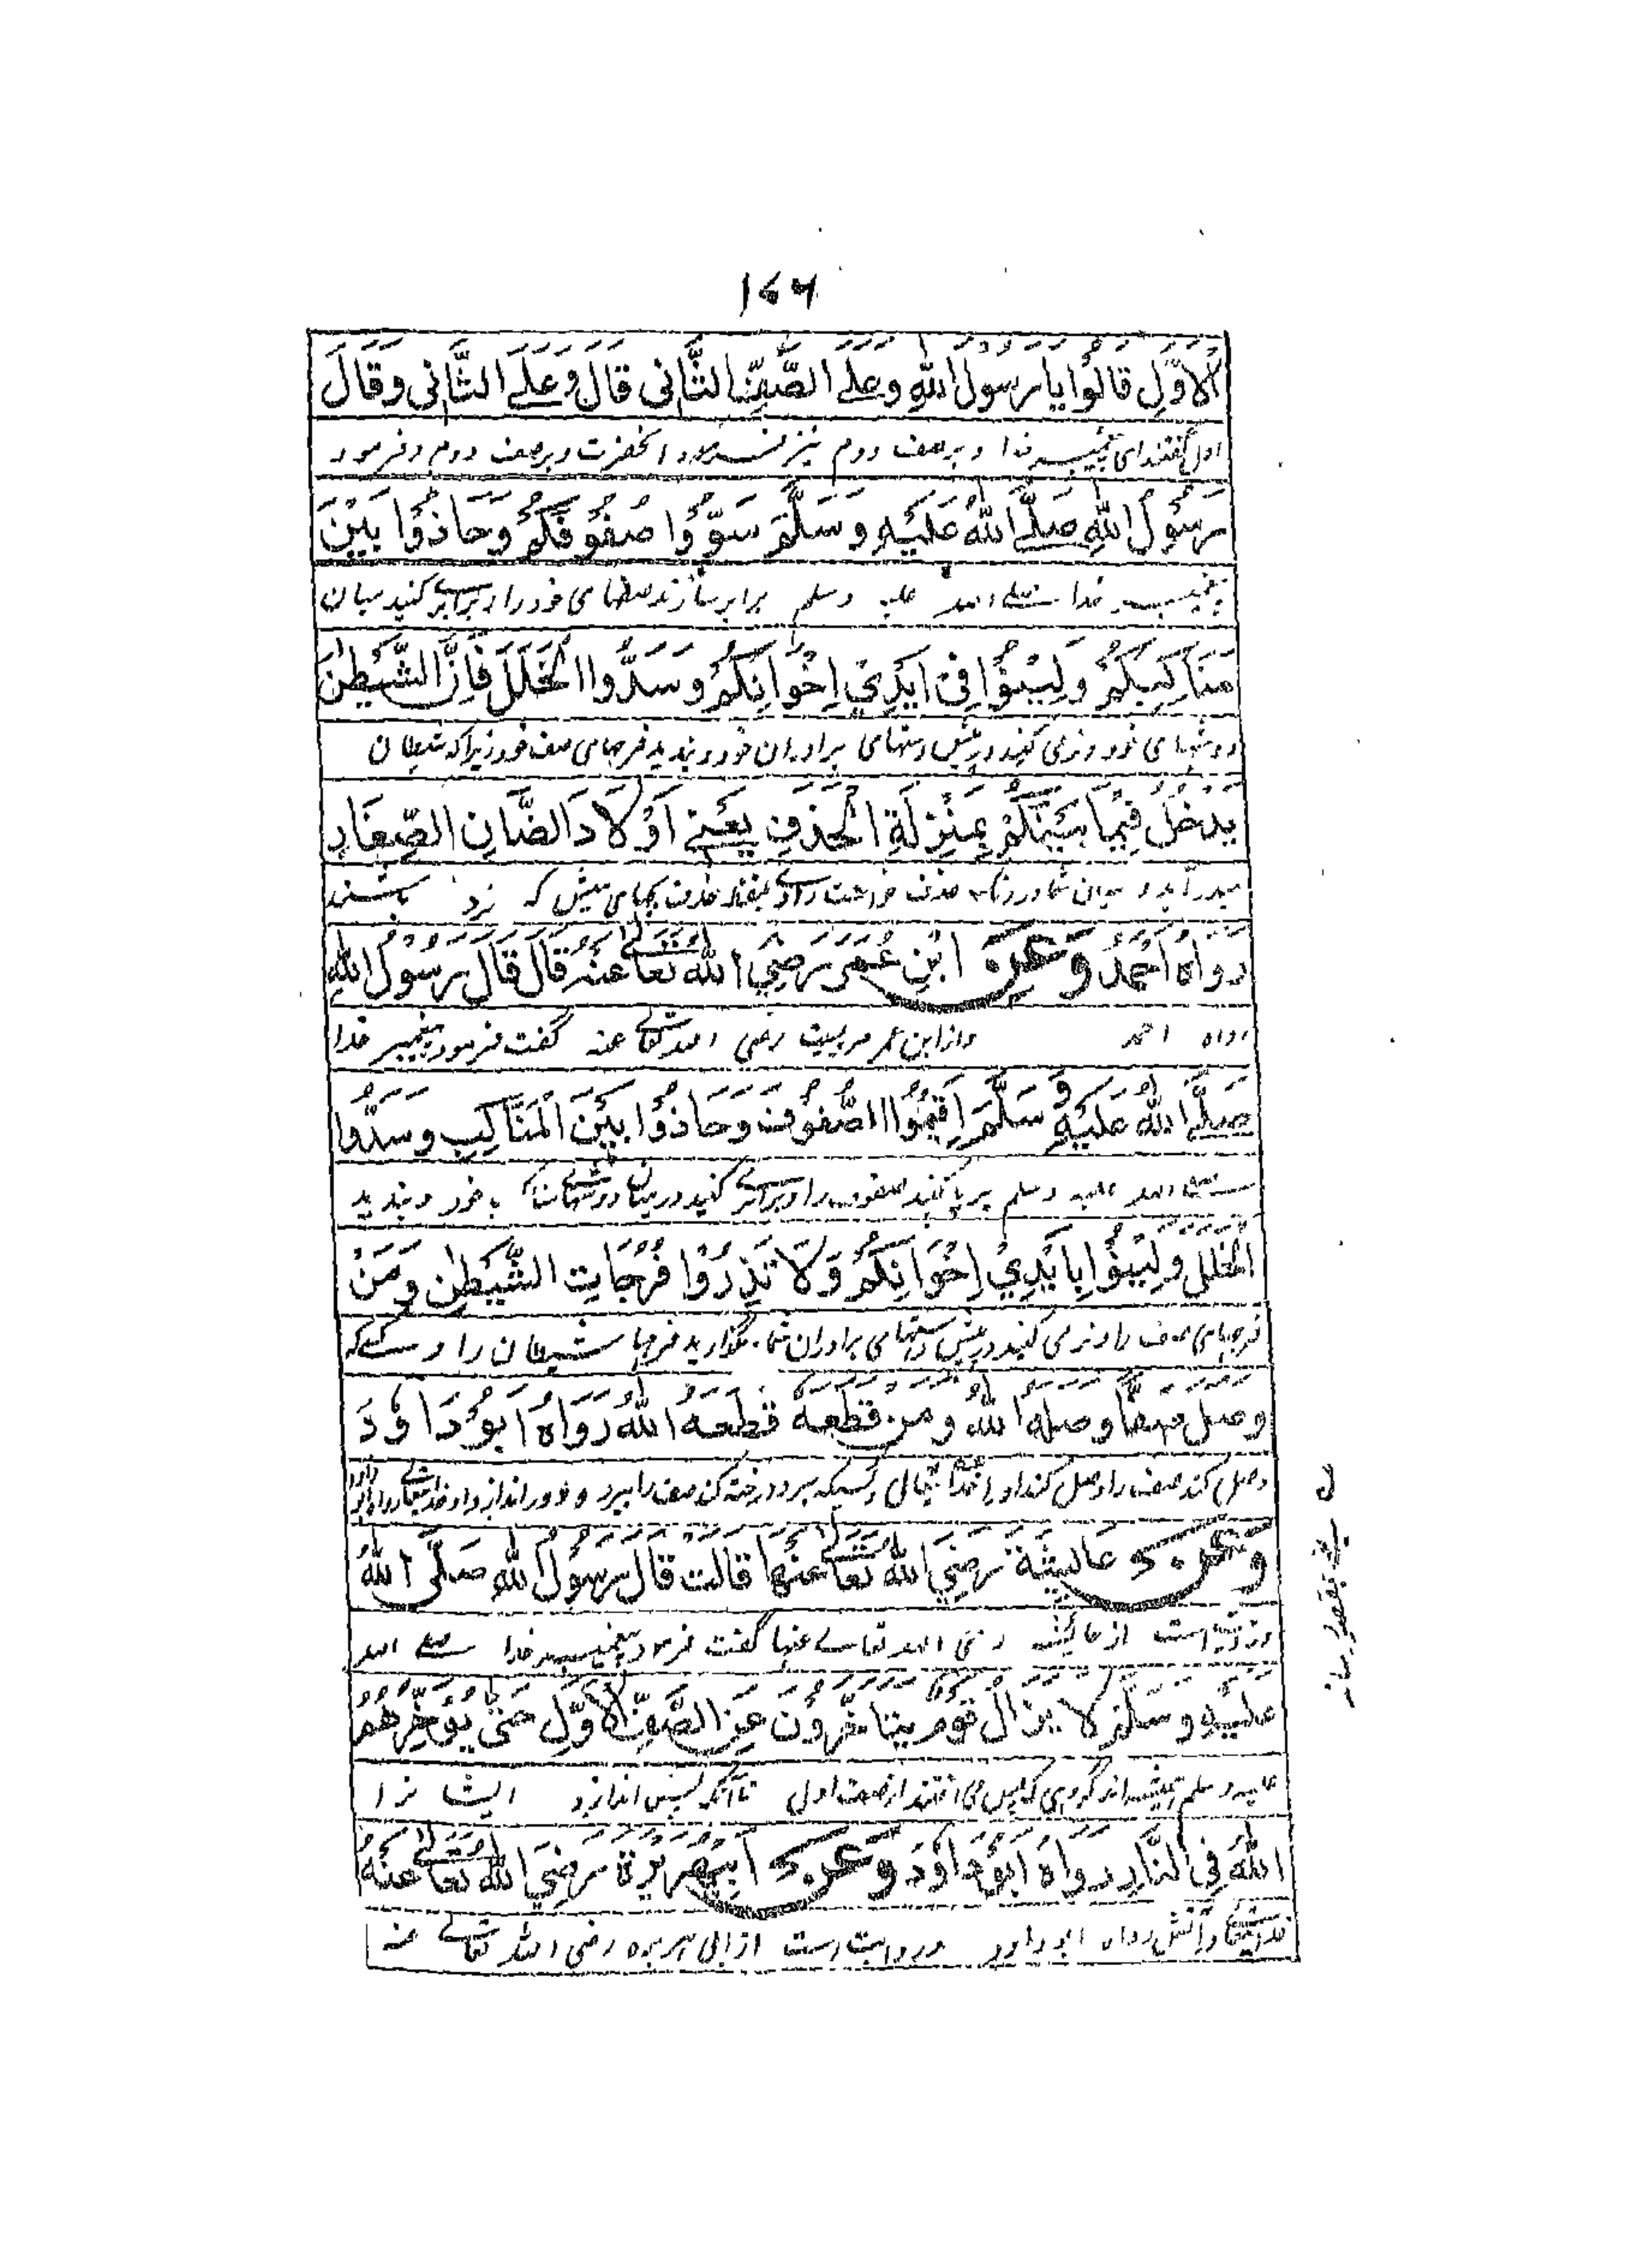 ۱۶۶
الْاَوَّلِ قَالُوْا يَا رَسُوْلَ اللّٰهِ وَعَلَى الصَّفِّ الثَّانِی قَالَ وَعَلَى الثَّانِی وَقَالَ
اول گفتند ای پیغمبر خدا و بر صف دوم نیز فرمود آنحضرت و بر صف دوم و فرمود
رَسُوْلُ اللّٰهِ صَلَّى اللّٰهُ عَلَيْهِ وَسَلَّمَ سَوُّوْا صُفُوْفَكُمْ وَحَاذُوْا بَيْنَ
پیغمبر خدا صلے اللہ علیہ وسلم برابر سازند صفهای خود را و برابری کنید میان
مَنَاكِبِكُمْ وَلِيْنُوْا فِیْ اَيْدِیْ اِخْوَانِكُمْ وَسَدُّوا الْخَلَلَ فَاِنَّ الشَّيْطٰنَ
دوشهای خود و نرمی کنید در پیش دستهای برادران خود و بندید فرجهای صف خود زیرا که شیطان
يَدْخُلُ فِيْمَا بَيْنَكُمْ بِمَنْزِلَةِ الْحَذَفِ يَعْنِیْ اَوْلَادَ الضَّانِ الصِّغَارِ
میدر آید در میان شما حذف بچهای میش که خرد باشند
رَوَاهُ اَحْمَدُ وَعَنْ ابْنِ عُمَرَ رَضِیَ اللّٰهُ تَعَالٰى عَنْهُ قَالَ قَالَ رَسُوْلُ اللّٰهِ
رواه احمد و از ابن عمر مرویست رضی اللہ تعالے عنہ گفت فرمود پیغمبر خدا
صَلَّى اللّٰهُ عَلَيْهِ وَسَلَّمَ اَقِيْمُوا الصُّفُوْفَ وَحَاذُوْا بَيْنَ الْمَنَاكِبِ وَسَدُّوا
صلے اللہ علیہ وسلم برپا کنید صفوف را و برابری کنید در میان دوشها خود و بندید
الْخَلَلَ وَلِيْنُوْا بِاَيْدِیْ اِخْوَانِكُمْ وَلَا تَذَرُوْا فُرُجَاتِ الشَّيْطٰنِ وَمَنْ
فرجهای صف را و نرمی کنید در پیش دستهای برادران شما و نگذارید فرجها شیطان را و کسے که
وصل صفا وصله اللّٰهُ ومن قطعه قطعه اللّٰهُ رَوَاهُ اَبُوْ دَاوٗدَ
وصل کند صف را وصل کند او را خدا تعالی و کسیکه ببرد و رخنه کند صف را ببرد و دور اندازد او را خدا تعالی رواه ابو داود
وَعَنْ عَائِشَةَ رَضِیَ اللّٰهُ تَعَالٰى عَنْهَا قَالَتْ قَالَ رَسُوْلُ اللّٰهِ صَلَّى اللّٰهُ
است از عائشہ رضی اللہ تعالے عنہا گفت فرمود پیغمبر خدا صلے اللہ
عَلَيْهِ وَسَلَّمَ لَا يَزَالُ قَوْمٌ يَتَاَخَّرُوْنَ عَنِ الصَّفِّ الْاَوَّلِ حَتّٰى يُؤَخِّرَهُمُ
علیہ وسلم همیشہ اند گروہی که پس می افتند از صف اول تا آنکہ پس اندازد ایشانرا
اللّٰهُ فِی النَّارِ رَوَاهُ اَبُوْ دَاوٗدَ وَعَنْ اَبِیْ هُرَيْرَةَ رَضِیَ اللّٰهُ تَعَالٰى عَنْهُ
خدا تعالی در آتش رواه ابو داود و روایت است از ابی ہریرہ رضی اللہ تعالے عنہ